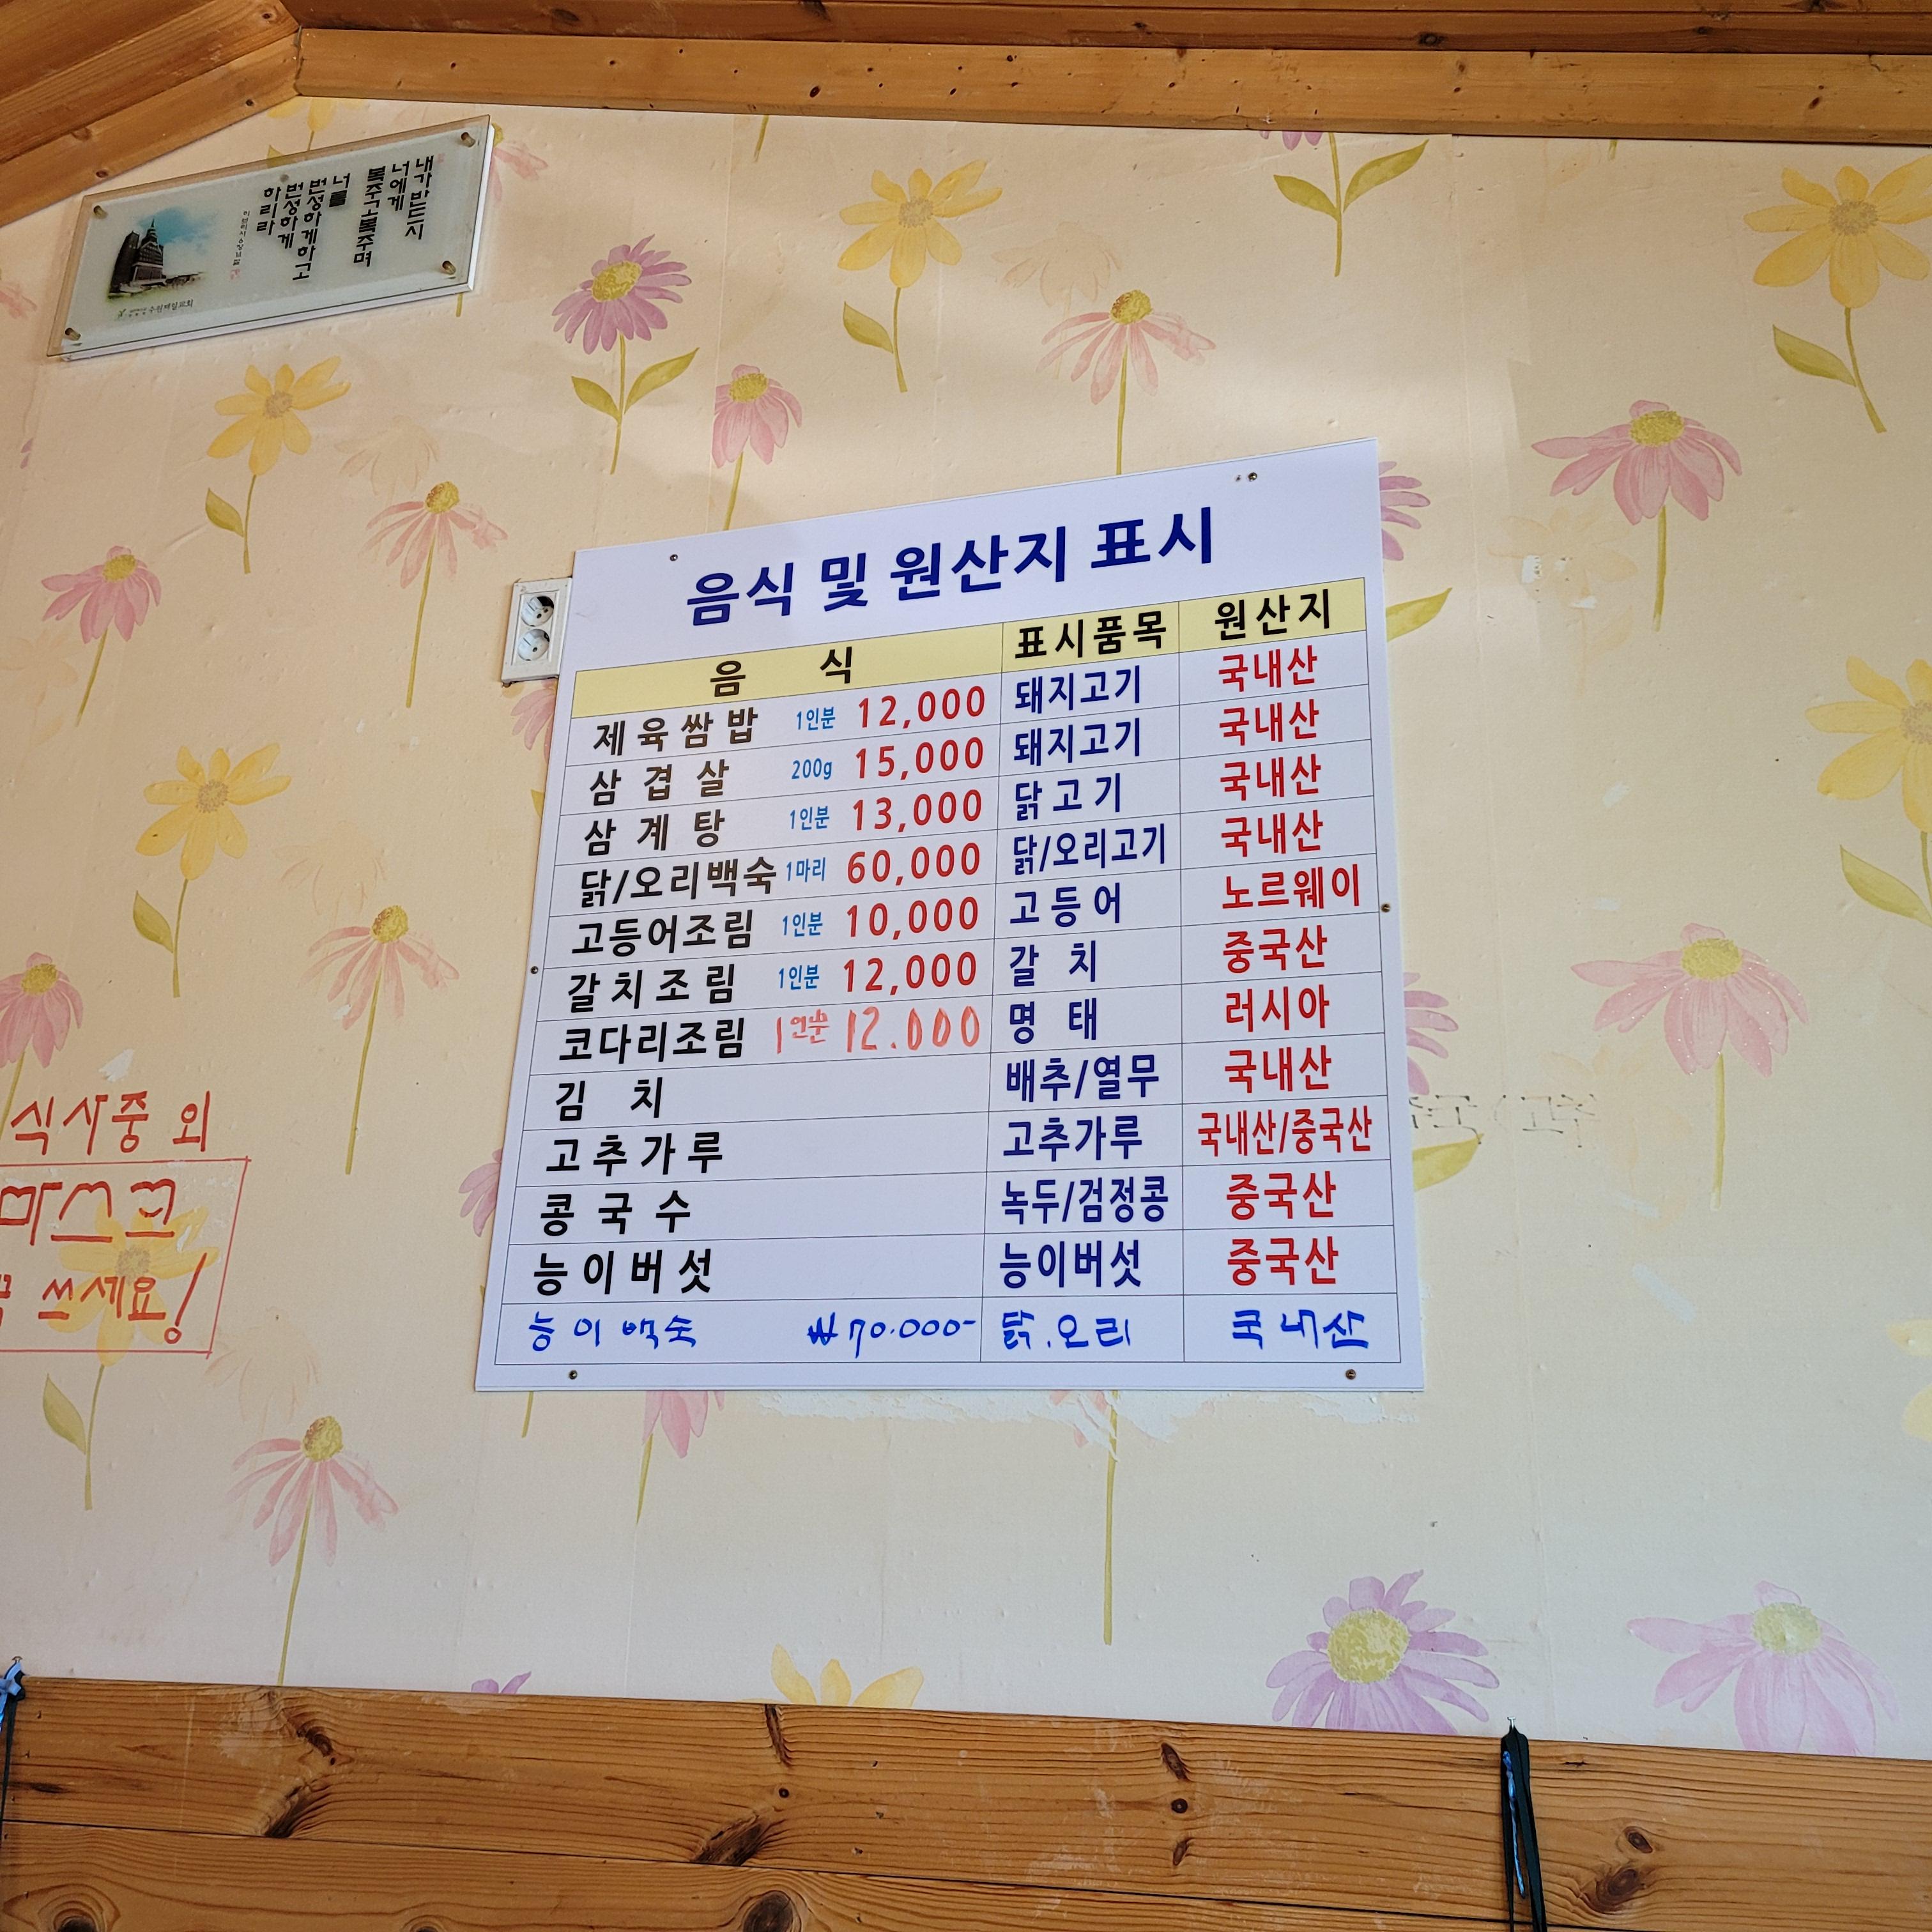 내가 반드시
너에게
복주고 복주며
너를
번성하게 하고
번성하게
하리라
음식 및 원산지 표시
음 식 표시품목 원산지
제육쌈밥 1인분 12,000 돼지고기 국내산
삼겹살 200g 15,000 돼지고기 국내산
삼계탕 1인분 13,000 닭고기 국내산
닭/오리백숙 1마리 60,000 닭/오리고기 국내산
고등어조림 1인분 10,000 고등어 노르웨이
갈치조림 1인분 12,000 갈치 중국산
코다리조림 1인분 12.000 명태 러시아
김치 배추/열무 국내산
고추가루 고추가루 국내산/중국산
콩국수 녹두/검정콩 중국산
능이버섯 능이버섯 중국산
능이백숙 ₩70.000- 닭.오리 국내산
식사중 외
마스크
쓰세요!